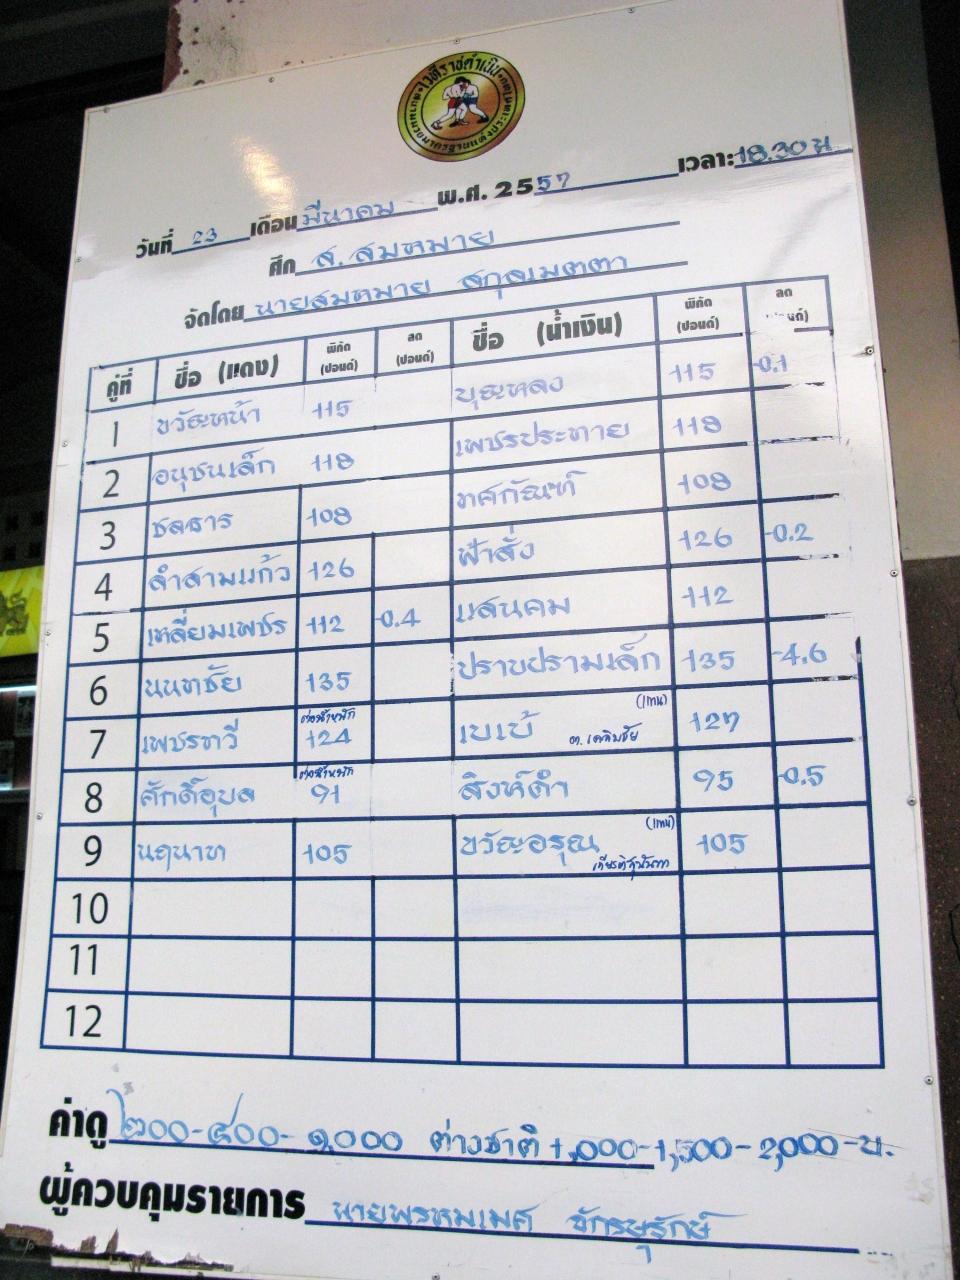 เวทีราชดำเนิน
วันที่ 23 เดือน มีนาคม พ.ศ. 2557 เวลา: 18.30 น
ศึก ส. สมหมาย
จัดโดย นายสมหมาย สกุลเมตตา
คู่ที่ ชื่อ (แดง) พิกัด (ปอนด์) ลด (ปอนด์) ชื่อ (น้ำเงิน) พิกัด (ปอนด์) ลด
1 ขวัญหน้า 115 บุญหลง 115 -0.1
2 อนุชนเล็ก 118 เพชรประทาย 118
3 ชลธาร 108 ทศกัณฑ์ 108
4 ลำสามแก้ว 126 ฟ้าสั่ง 126 -0.2
5 เหลี่ยมเพชร 112 -0.4 แสนคม 112
6 นนทชัย 135 ปราบปรามเล็ก 135 -4.6
7 เพชรทวี ต่อน้ำหนัก 124 เบเบ้ (แทน) 127
8 ศักดิ์อุบล ต่อน้ำหนัก 91 สิงห์ดำ 95 -0.5
9 นฤนาท 105 ขวัญอรุณ (แทน) 105
10
11
12
ค่าดู ๒๐๐-๔๐๐-๑,๐๐๐ ต่างชาติ 1,000-1,500-2,000-บ.
ผู้ควบคุมรายการ นายพรหมเมศ จักรษุรักษ์